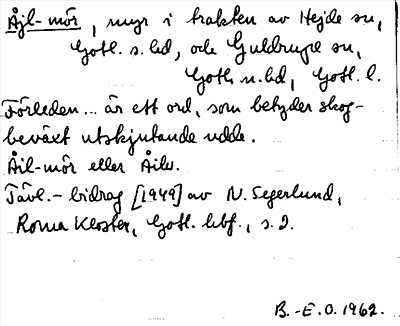 Åjl-mör, myr i trakten av Hejde sn,
Gotl. s. hd, och Guldrupe sn,
Gotl. n. hd, Gotl. l.
Förleden... är ett ord, som betyder skog-
beväxt utskjutande udde.
Åil-mör eller Åilu.
Tävl.-bidrag [1949] av N. Segerlund,
Roma Kloster, Gotl. hbf., s. 2.
B.-E.O. 1962.